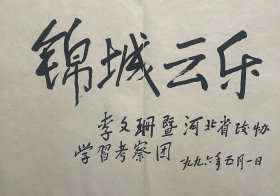 锦城云乐
李文珊暨河北省政协
学習考察团
一九九六年五月一日